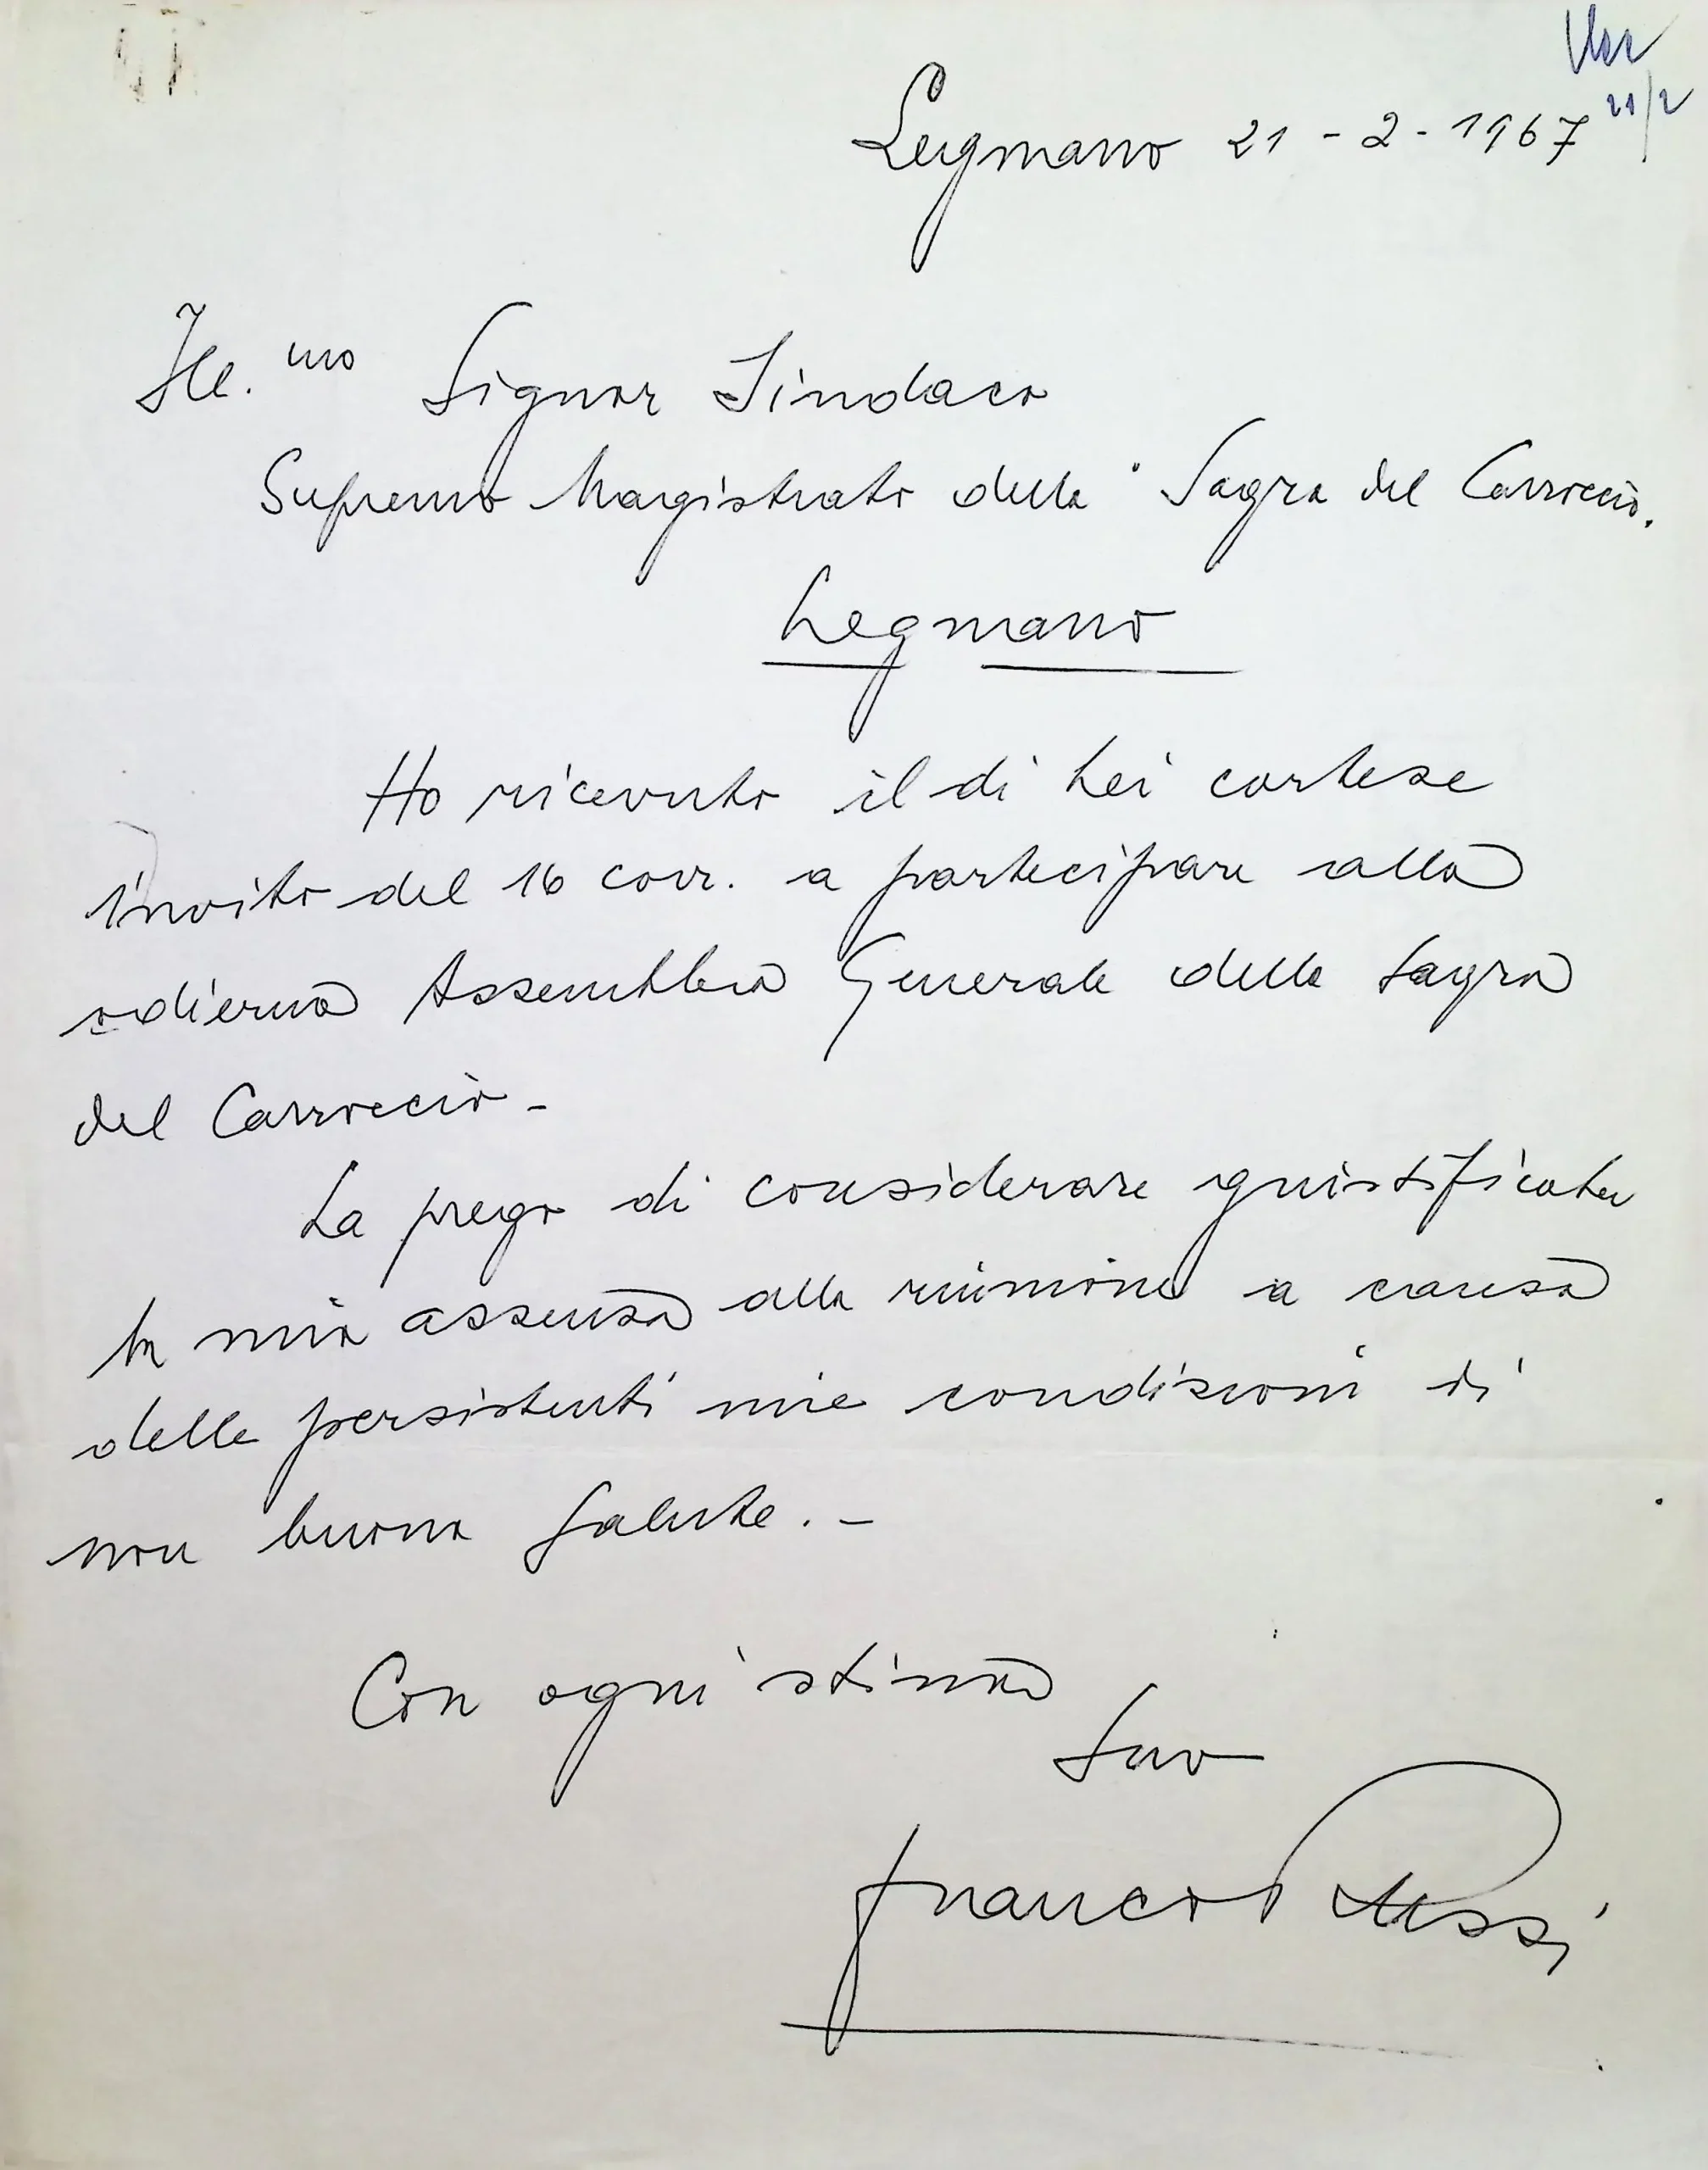 21/2
Legnano 21-2-1967
Ill.mo Signor Sindaco
Supremo Magistrato della Sagra del Carroccio.
Legnano
Ho ricevuto il di Lei cortese
invito del 16 corr. a partecipare alla
odierna Assemblea Generale della Sagra
del Carroccio -
La prego di considerare giustificata
la mia assenza alla riunione a causa
delle persistenti mie condizioni di
non buona salute. -
Con ogni stima
Suo
Franco